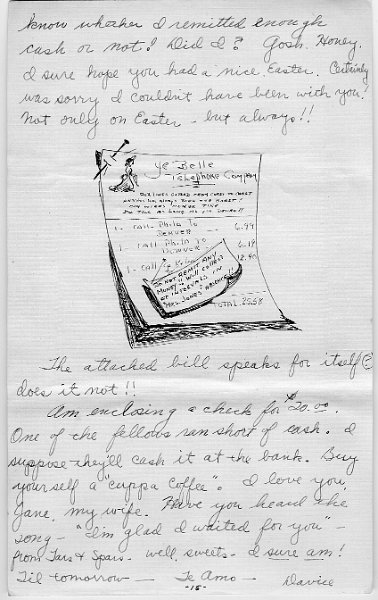 know whether I remitted enough
cash or not! Did I? Gosh. Honey.
I sure hope you had a nice Easter. Certainly
was sorry I couldn't have been with you!
Not only on Easter - but always!!
Ye Belle
Telephone Company
OUR LINES EXTEND FROM COAST TO COAST
1 - CALL PhilA TO
DENVER 6.99
1 - CALL PhilA TO
DENVER 6.19
1 - CALL 12.40
DO NOT REMIT ANY
MONEY - I WILL COLLECT
AT INTERVALS IN
MRS. JONES' ABSENCE!!
TOTAL 25.58
The attached bill speaks for itself
does it not!!
Am enclosing a check for $20.00.
One of the fellows ran short of cash. I
suppose they'll cash it at the bank. Buy
yourself a "cuppa coffee". I love you,
Jane, my wife. Have you heard the
song - "I'm glad I waited for you" -
from Tars & Spars. Well, sweets - I sure am!
Til tomorrow - Te Amo -
Davice
-15-